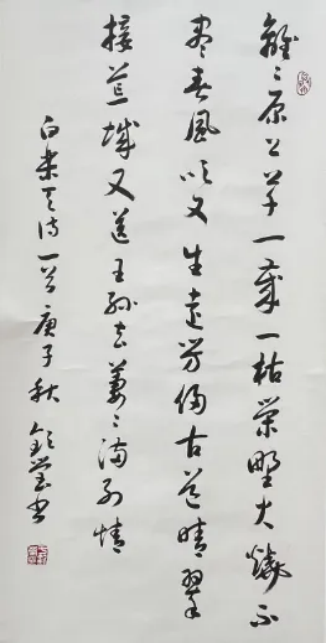 離〻原上草一歲一枯榮野火燒不
盡春風吹又生遠芳侵古道晴翠
接荒城又送王孫去萋〻滿別情
白樂天诗一首庚子秋 书